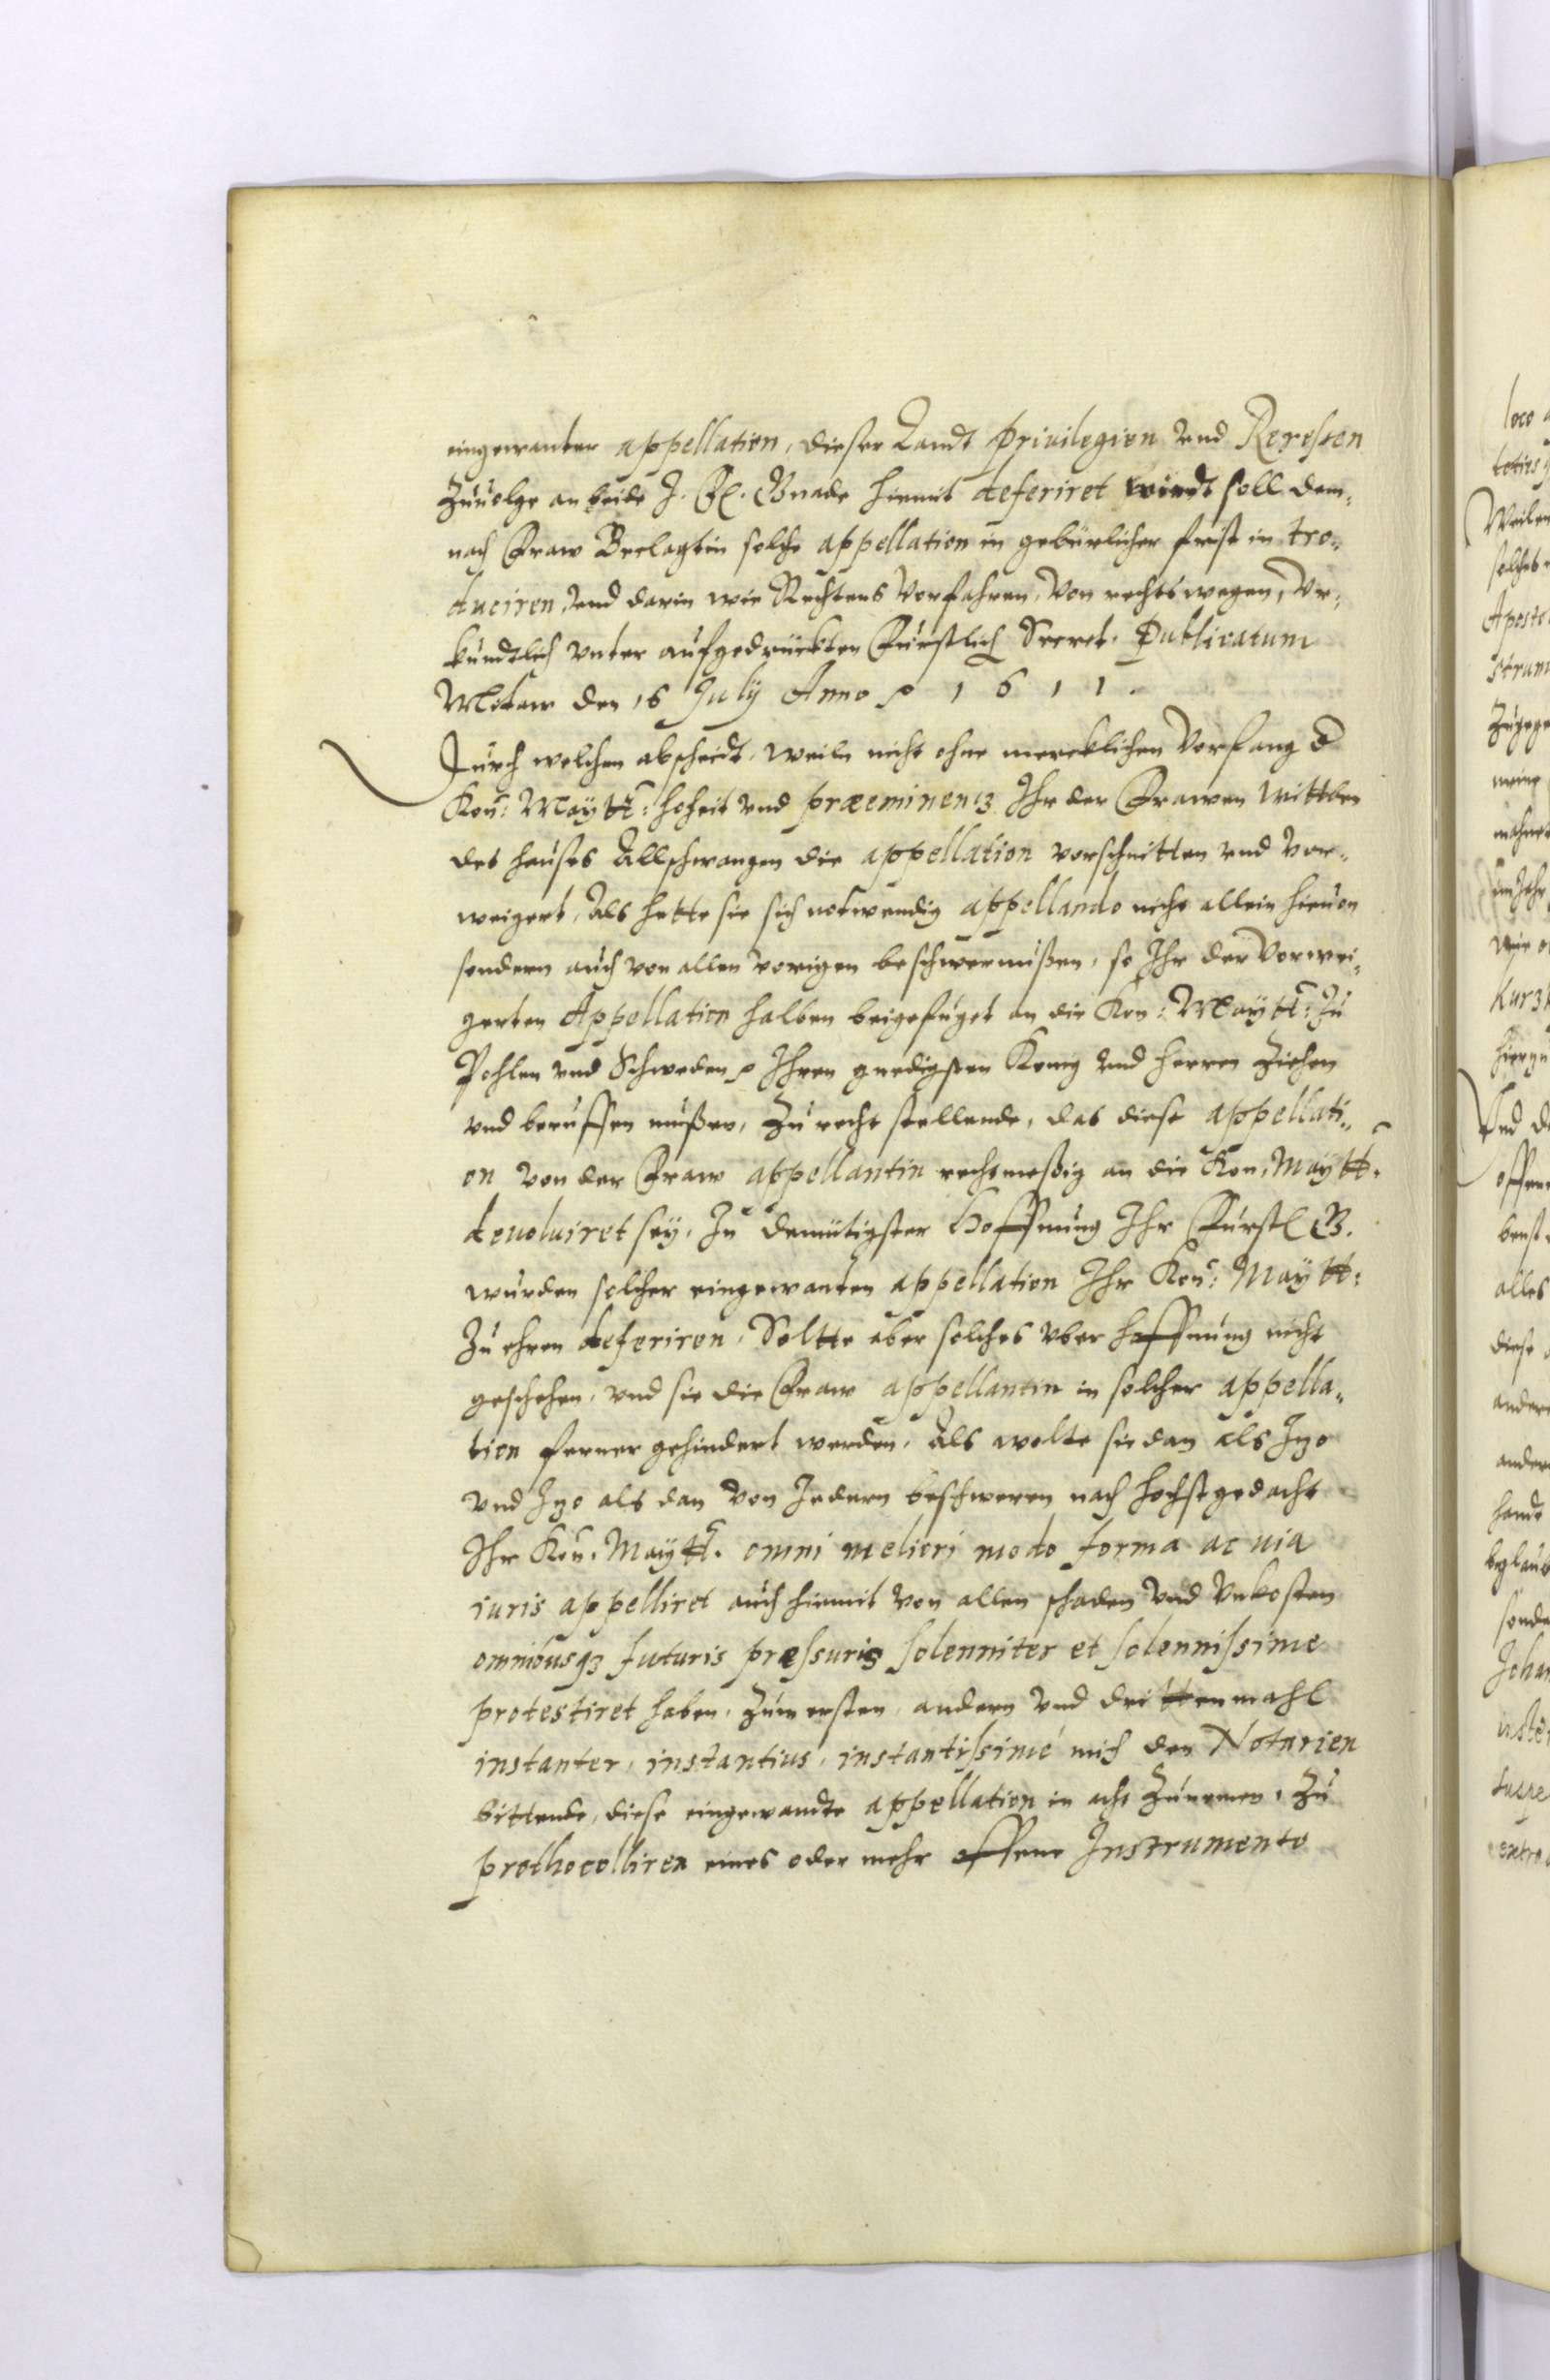 eingewanter appellation, dieser Landt Priuilegien vnd Recessen
Zuuolge an beide J. Fl. Gnade hiemit deferiret wirdt soll dem„
nach Fraw Beclagtin solche appellation in gebürlicher frist in tro„
duciren, vnd darin wie Rechtens Vorfahren, Von rechts wegen, Vr„
kundtlich vnter aufgedrückten Furstlich Secret. Publicatum
Mitaw den 16 July Anno 1611.
Durch welchen abscheidt, weiln nicht ohne mercklichen Vorfang d
Kön: Maytt: hoheit vnd præeminentz Ihr der Frawen Wittben
des hauses Allschwangen die appellation vorschnitten vnd Vor„
weigert, Als hette sie sich notwendig appellando nicht allein hieuon
sondern auch von allen vorigen beschwernüßen, so Ihr der Vorwei„
gerten Appellation halben beigefuget an die Kön: Maytt: Zu
Pohlen vnd Schweden Ihren gnedigsten Konig vnd herren Ziehen
vnd beruffen mußen, Zu recht stellende, das diese appellati„
on von der Fraw appellantin rechtmeßig an die Kön. Maytt.
deuoluiret sey, In demütigster Hoffnung Ihr Furstl G.
wurden solcher eingewanten appellation Ihr Kön: Maytt:
Zu ehren deferiren, Soltte aber solches vber hoffnung nicht
geschehen, vnd sie die Fraw appellantin in solcher appella„
tion ferner gehindert werden, Als wolte sie dan als Izo
vnd Izo als dan Von Jedern beschweren nach hochstgedacht
Ihr Kön. Maytt. omni meliori modo forma ac uia
iuris appelliret auch hiemit Von allen schaden vnd Vnkosten
omnibusq3 futuris præssuris solenniter et solennissime
protestiret haben, Zum ersten, andern vnd drittenmahl
instanter, instantius, instantissimé mich den Notarien
bittende, diese eingewandte appellation in acht Zunemen, Zu
prothocolliren eines oder mehr offene Instrumento